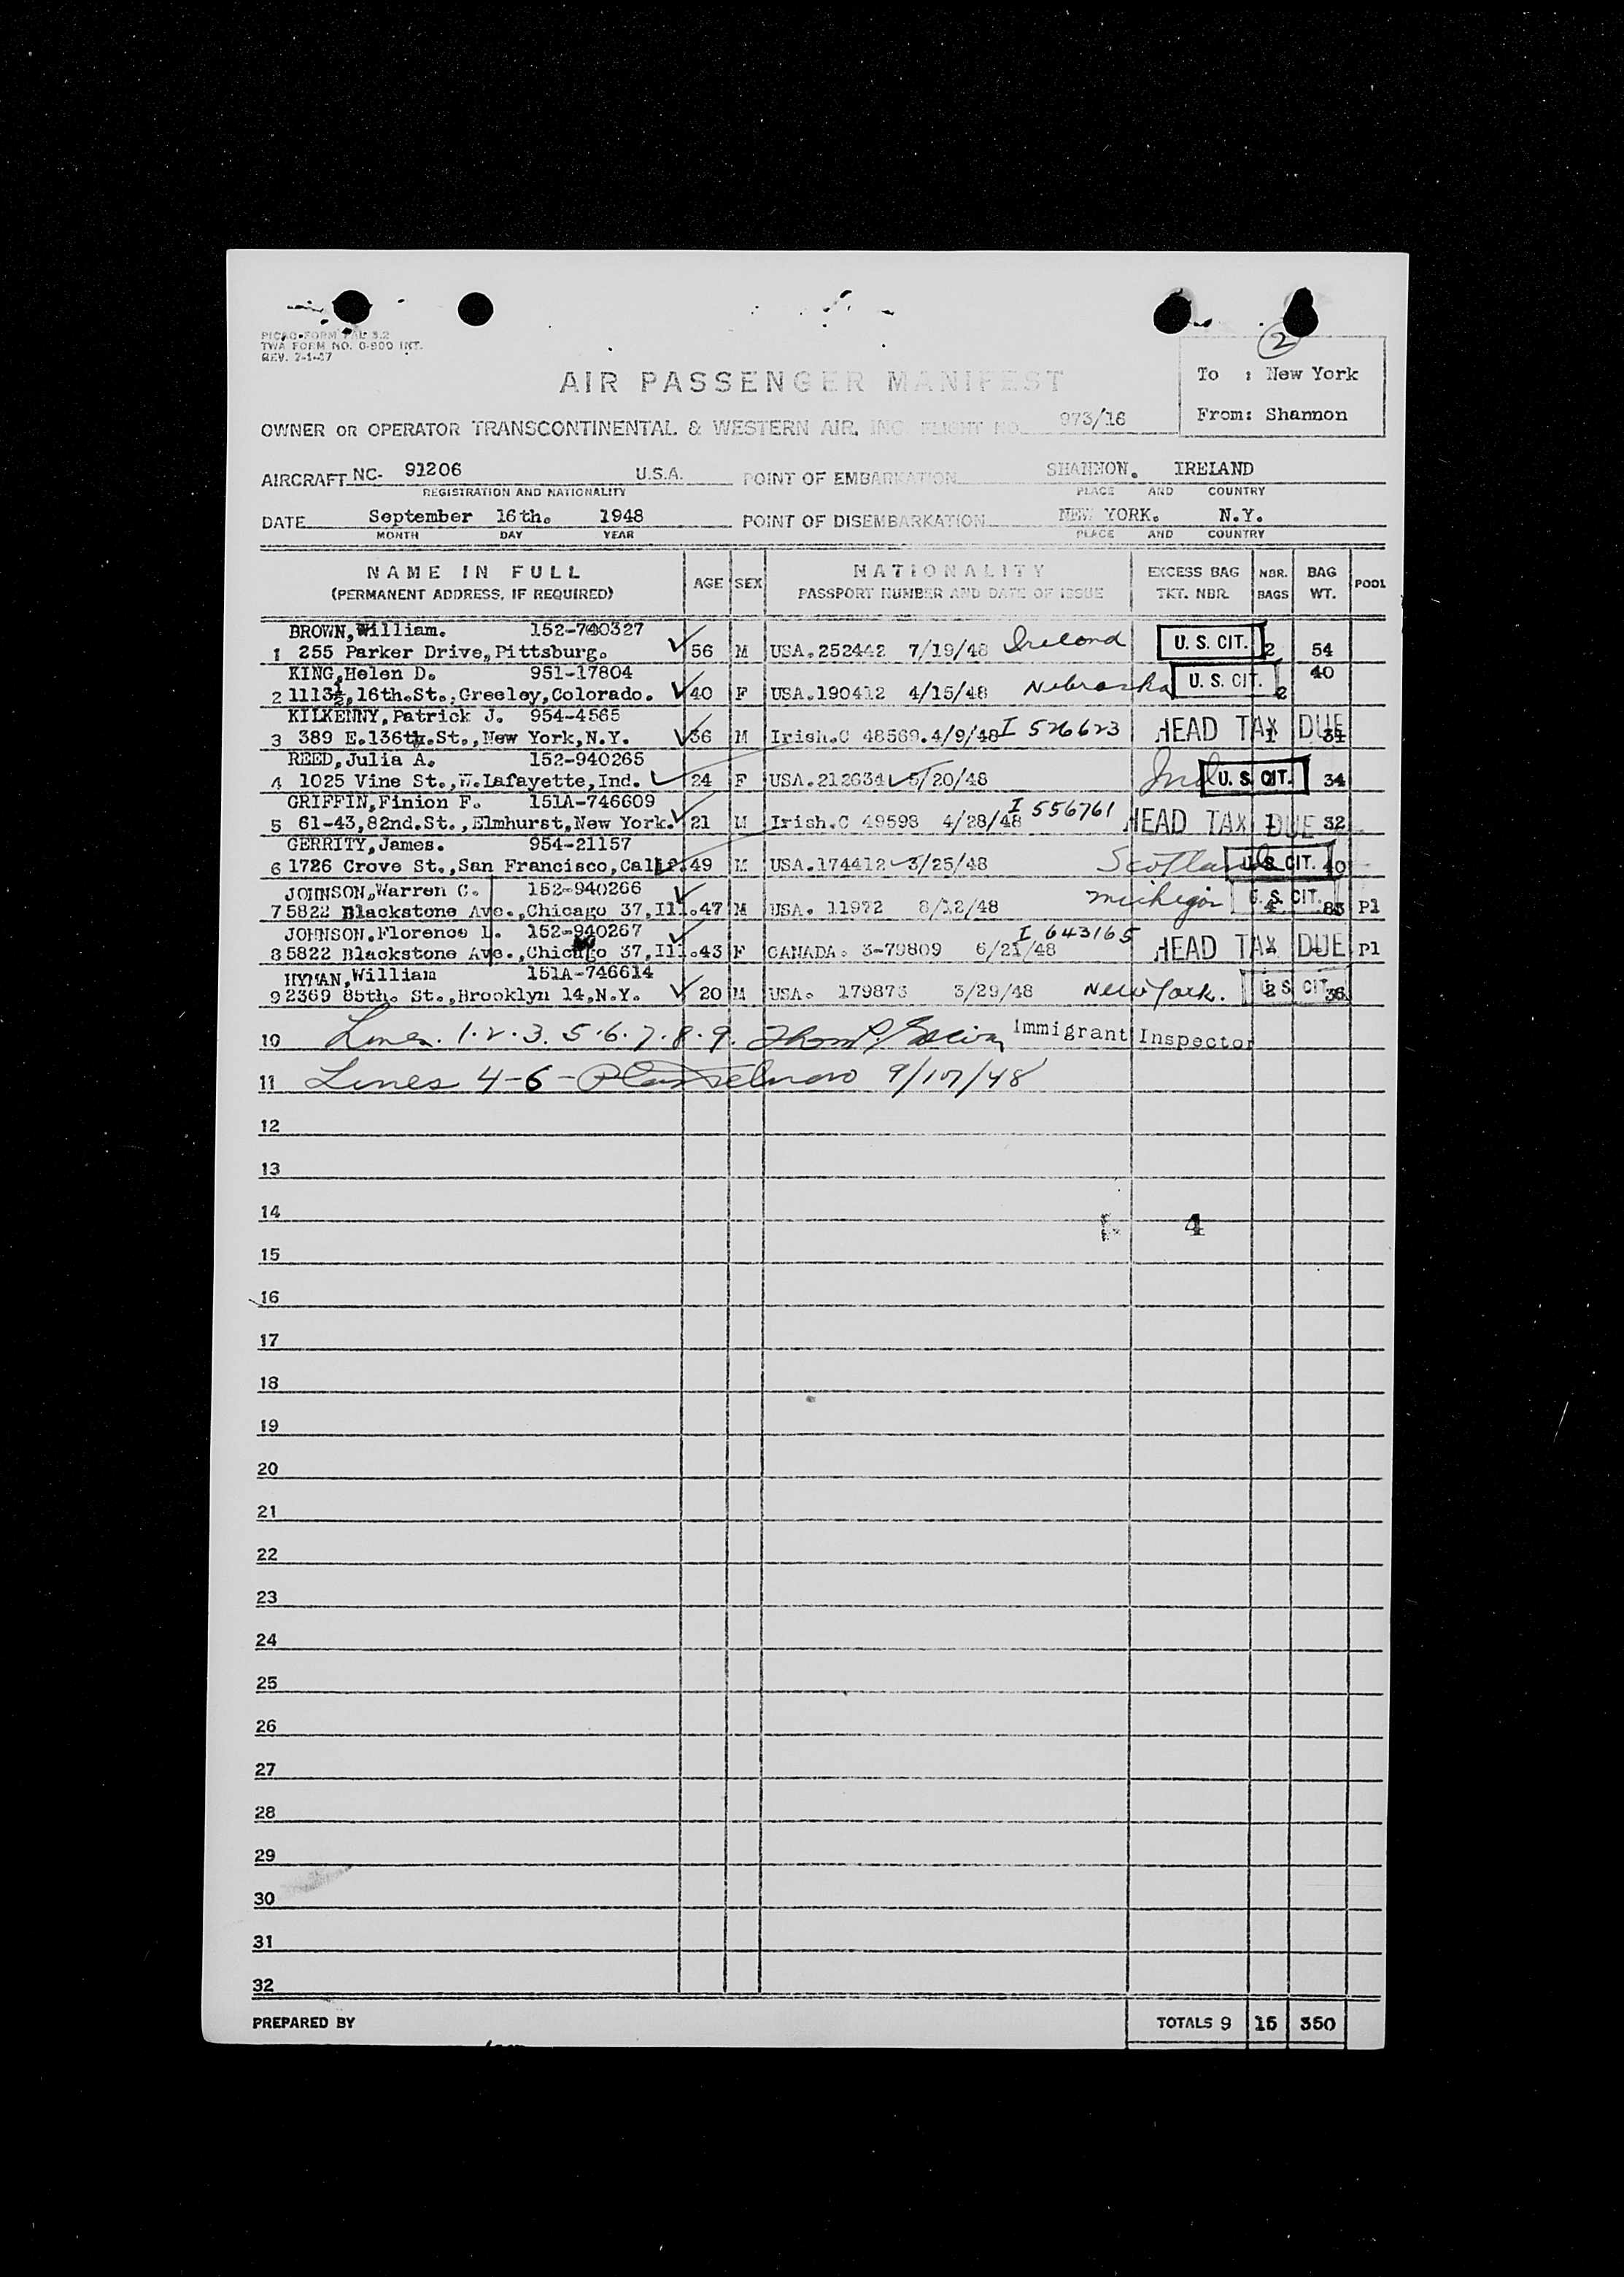 PICAO-FORM PAL 3.2
TWA FORM NO. 0-900 INT.
REV. 7-1-47
2
To : New York
From: Shannon
AIR PASSENGER MANIFEST
OWNER OR OPERATOR TRANSCONTINENTAL & WESTERN AIR, INC. FLIGHT NO. 973/16
AIRCRAFT NC- 91206 U.S.A. POINT OF EMBARKATION SHANNON. IRELAND
REGISTRATION AND NATIONALITY PLACE AND COUNTRY
DATE September 16th. 1948 POINT OF DISEMBARKATION NEW YORK. N.Y.
MONTH DAY YEAR PLACE AND COUNTRY
NAME IN FULL AGE SEX NATIONALITY EXCESS BAG NBR. BAG POOL
(PERMANENT ADDRESS, IF REQUIRED) PASSPORT NUMBER AND DATE OF ISSUE TKT. NBR. BAGS WT.
BROWN,William. 152-740327
1 255 Parker Drive,Pittsburg. 56 M USA.252442 7/19/48 Ireland U. S. CIT. 2 54
KING,Helen D. 951-17804
2 1113½,16th.St.,Greeley,Colorado. 40 F USA.190412 4/15/48 Nebraska U. S. CIT. 2 40
KILKENNY,Patrick J. 954-4565
3 389 E.136th.St.,New York,N.Y. 36 M Irish.C 48569.4/9/48 I 526623 HEAD TAX DUE 1 31
REED,Julia A. 152-940265
4 1025 Vine St.,W.Lafayette,Ind. 24 F USA.212634 5/20/48 Ind U. S. CIT. 34
GRIFFIN,Finion F. 151A-746609
5 61-43,82nd.St.,Elmhurst,New York. 21 M Irish.C 49598 4/28/48 I 556761 HEAD TAX DUE 1 32
GERRITY,James. 954-21157
6 1726 Crove St.,San Francisco,Calif. 49 M USA.174412 3/25/48 Scotland U.S. CIT. 40
JOHNSON,Warren C. 152-940266
7 5822 Blackstone Ave.,Chicago 37,Ill. 47 M USA. 11972 8/12/48 Michigan U. S. CIT. 4 83 Pl
JOHNSON.Florence L. 152-940267
8 5822 Blackstone Ave.,Chicago 37,Ill. 43 F CANADA. 3-79809 6/21/48 I 643165 HEAD TAX DUE Pl
HYMAN,William 151A-746614
9 2369 85th. St.,Brooklyn 14,N.Y. 20 M USA. 179873 3/29/48 New York. U S CIT. 2 36
10 Lines. 1.2.3.5.6.7.8.9. Immigrant Inspector
11 Lines 4-6- 9/17/48
12
13
14 4
15
16
17
18
19
20
21
22
23
24
25
26
27
28
29
30
31
32
PREPARED BY TOTALS 9 15 350